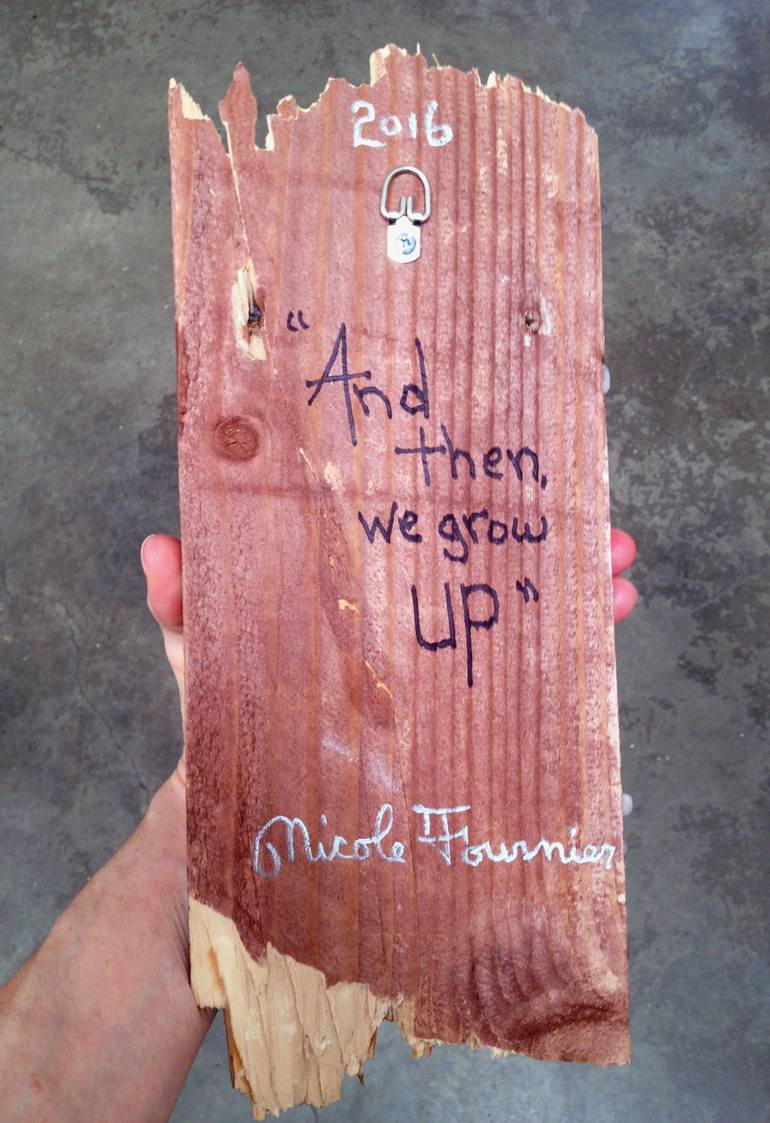 2016
"And
then,
we grow
up"
Nicole Fournier